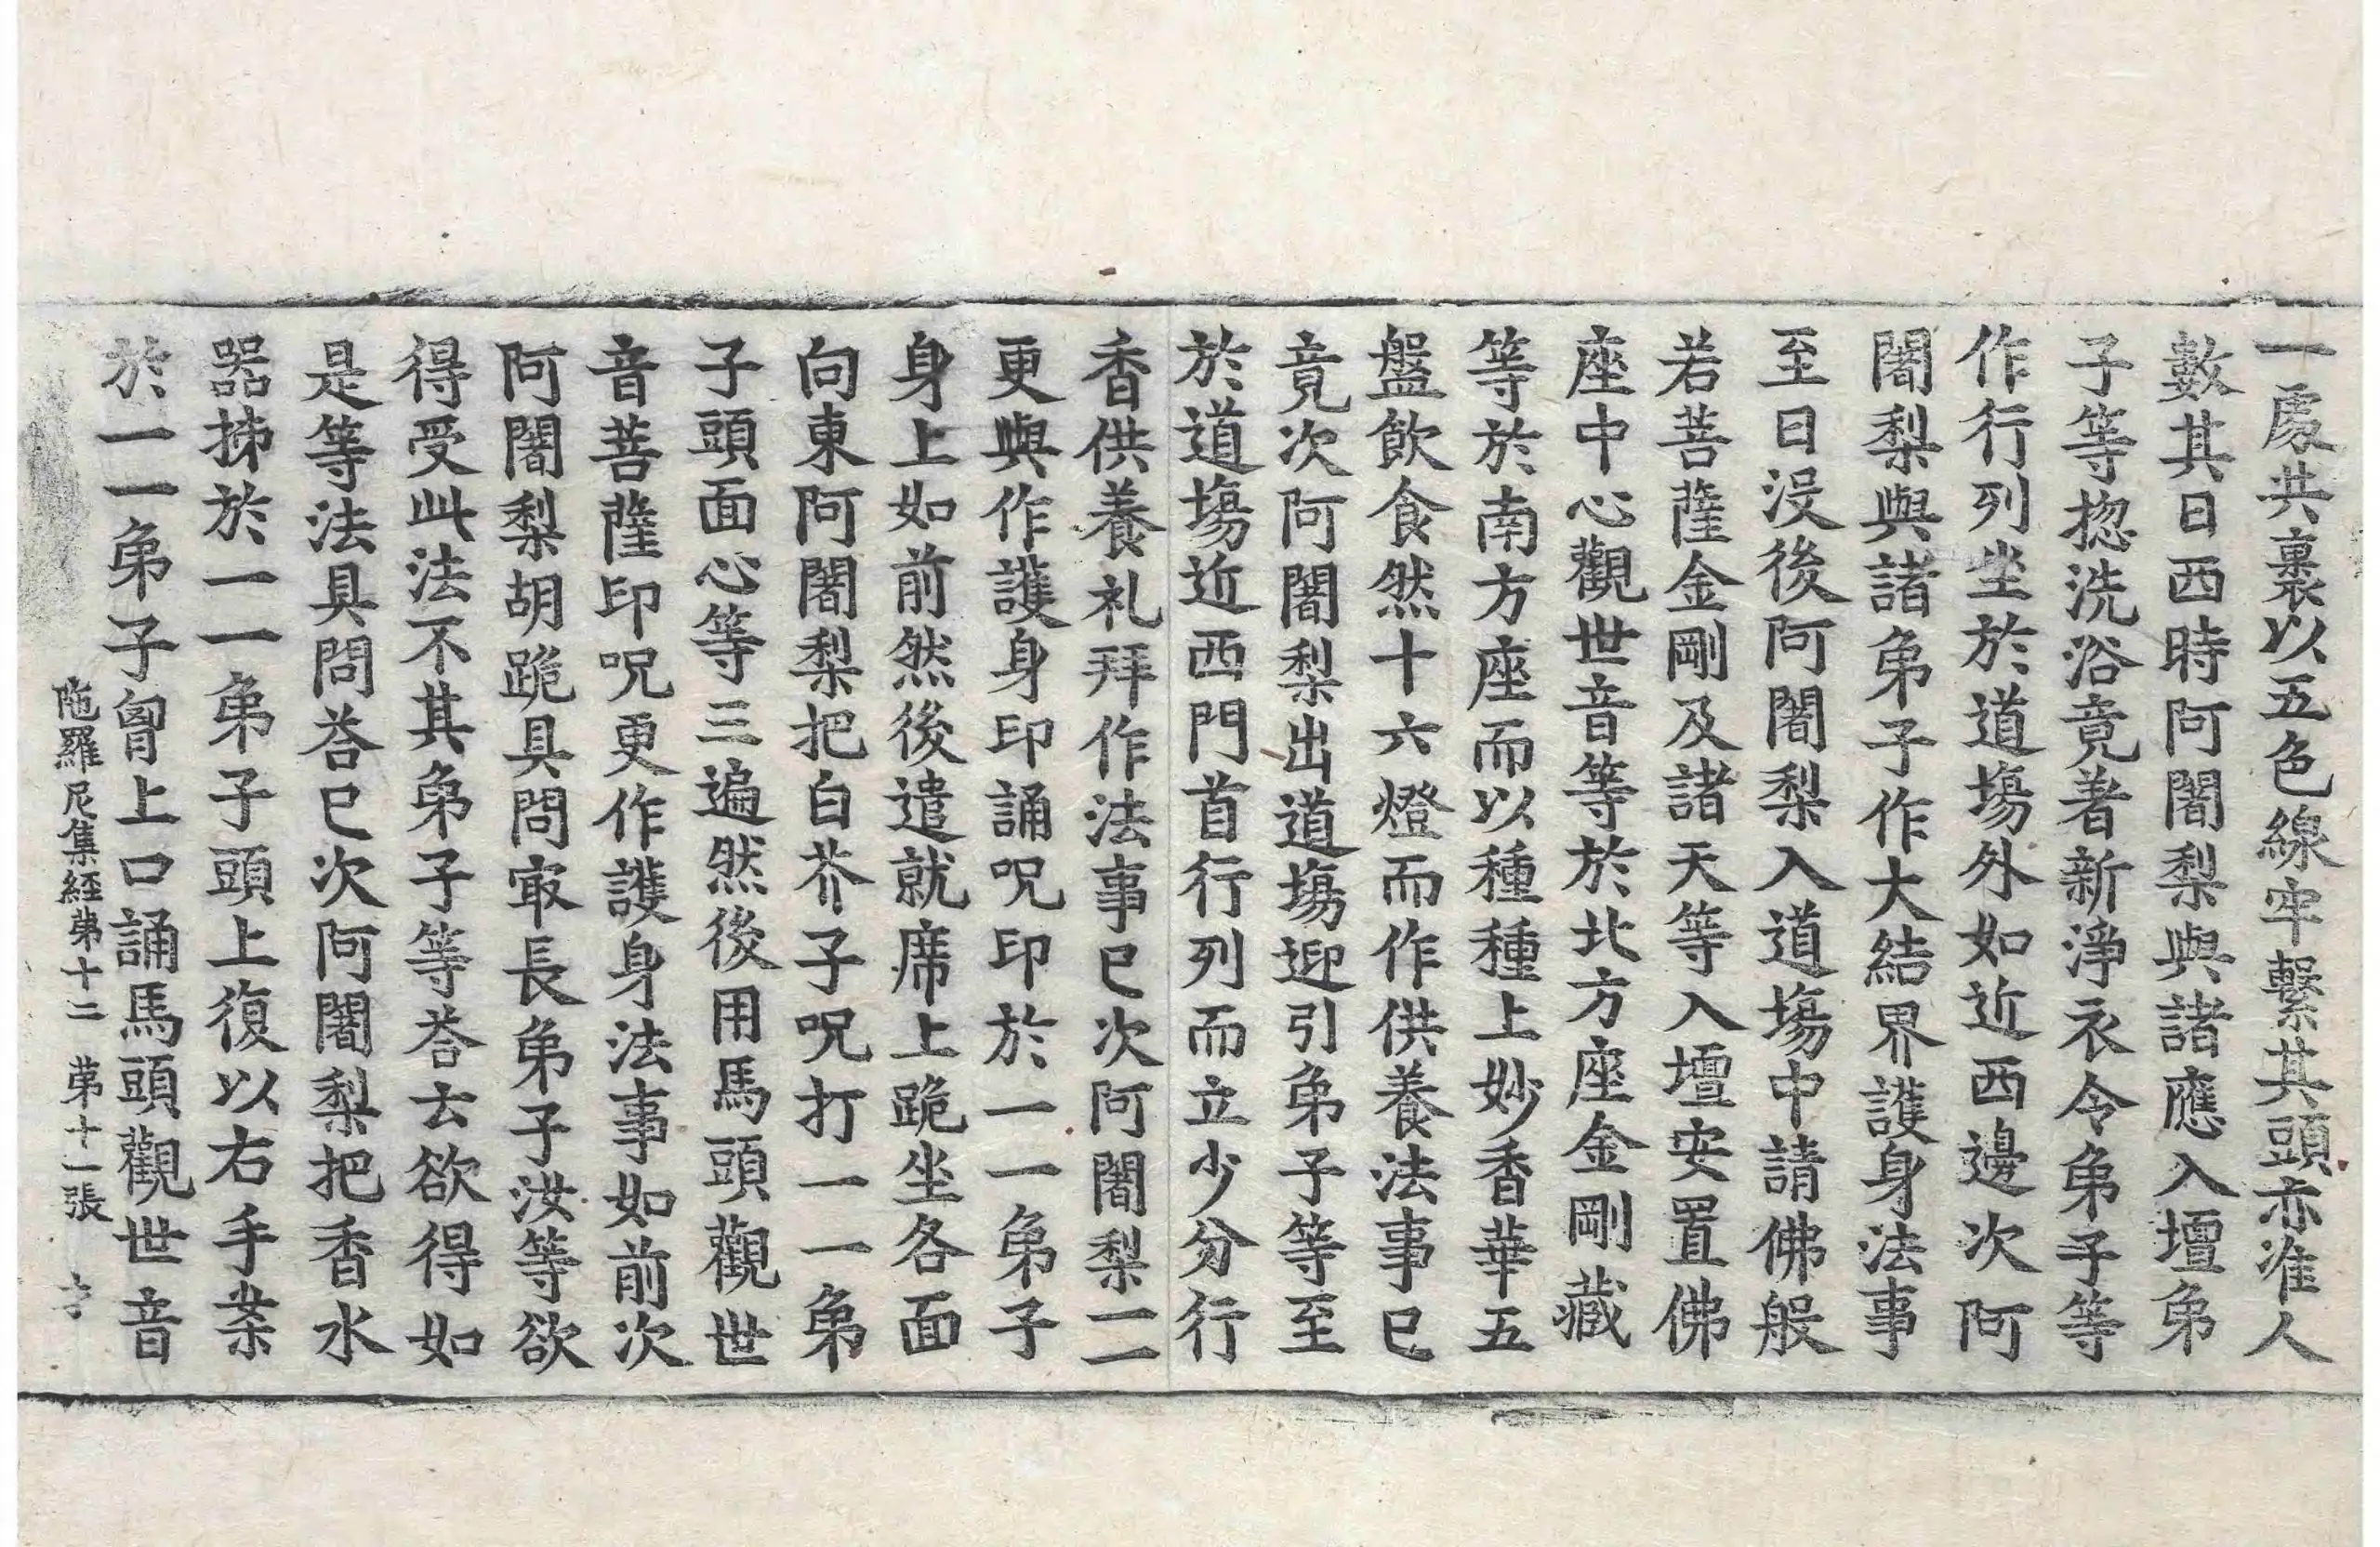 一處共裹以五色線牢繫其頭亦准人
數其日西時阿闍梨與諸應入壇弟
子等揔洗浴竟著新淨衣令弟子等
作行列坐於道場外如近西邊次阿
闍梨與諸弟子作大結界護身法事
至日沒後阿闍梨入道場中請佛般
若菩薩金剛及諸天等入壇安置佛
座中心觀世音等於北方座金剛藏
等於南方座而以種種上妙香華五
盤飲食然十六燈而作供養法事已
竟次阿闍梨出道場迎引弟子等至
於道場近西門首行列而立少分行
香供養礼拜作法事已次阿闍梨一一
更與作護身印誦呪印於一一弟子
身上如前然後遣就席上跪坐各面
向東阿闍梨把白芥子呪打一一弟
子頭面心等三遍然後用馬頭觀世
音菩薩印呪更作護身法事如前次
阿闍梨胡跪具問㝡長弟子汝等欲
得受此法不其弟子等荅云欲得如
是等法具問荅已次阿闍梨把香水
器㧊於一一弟子頭上復以右手案
於一一弟子胷上口誦馬頭觀世音
陁羅尼集經苐十二 苐十一張